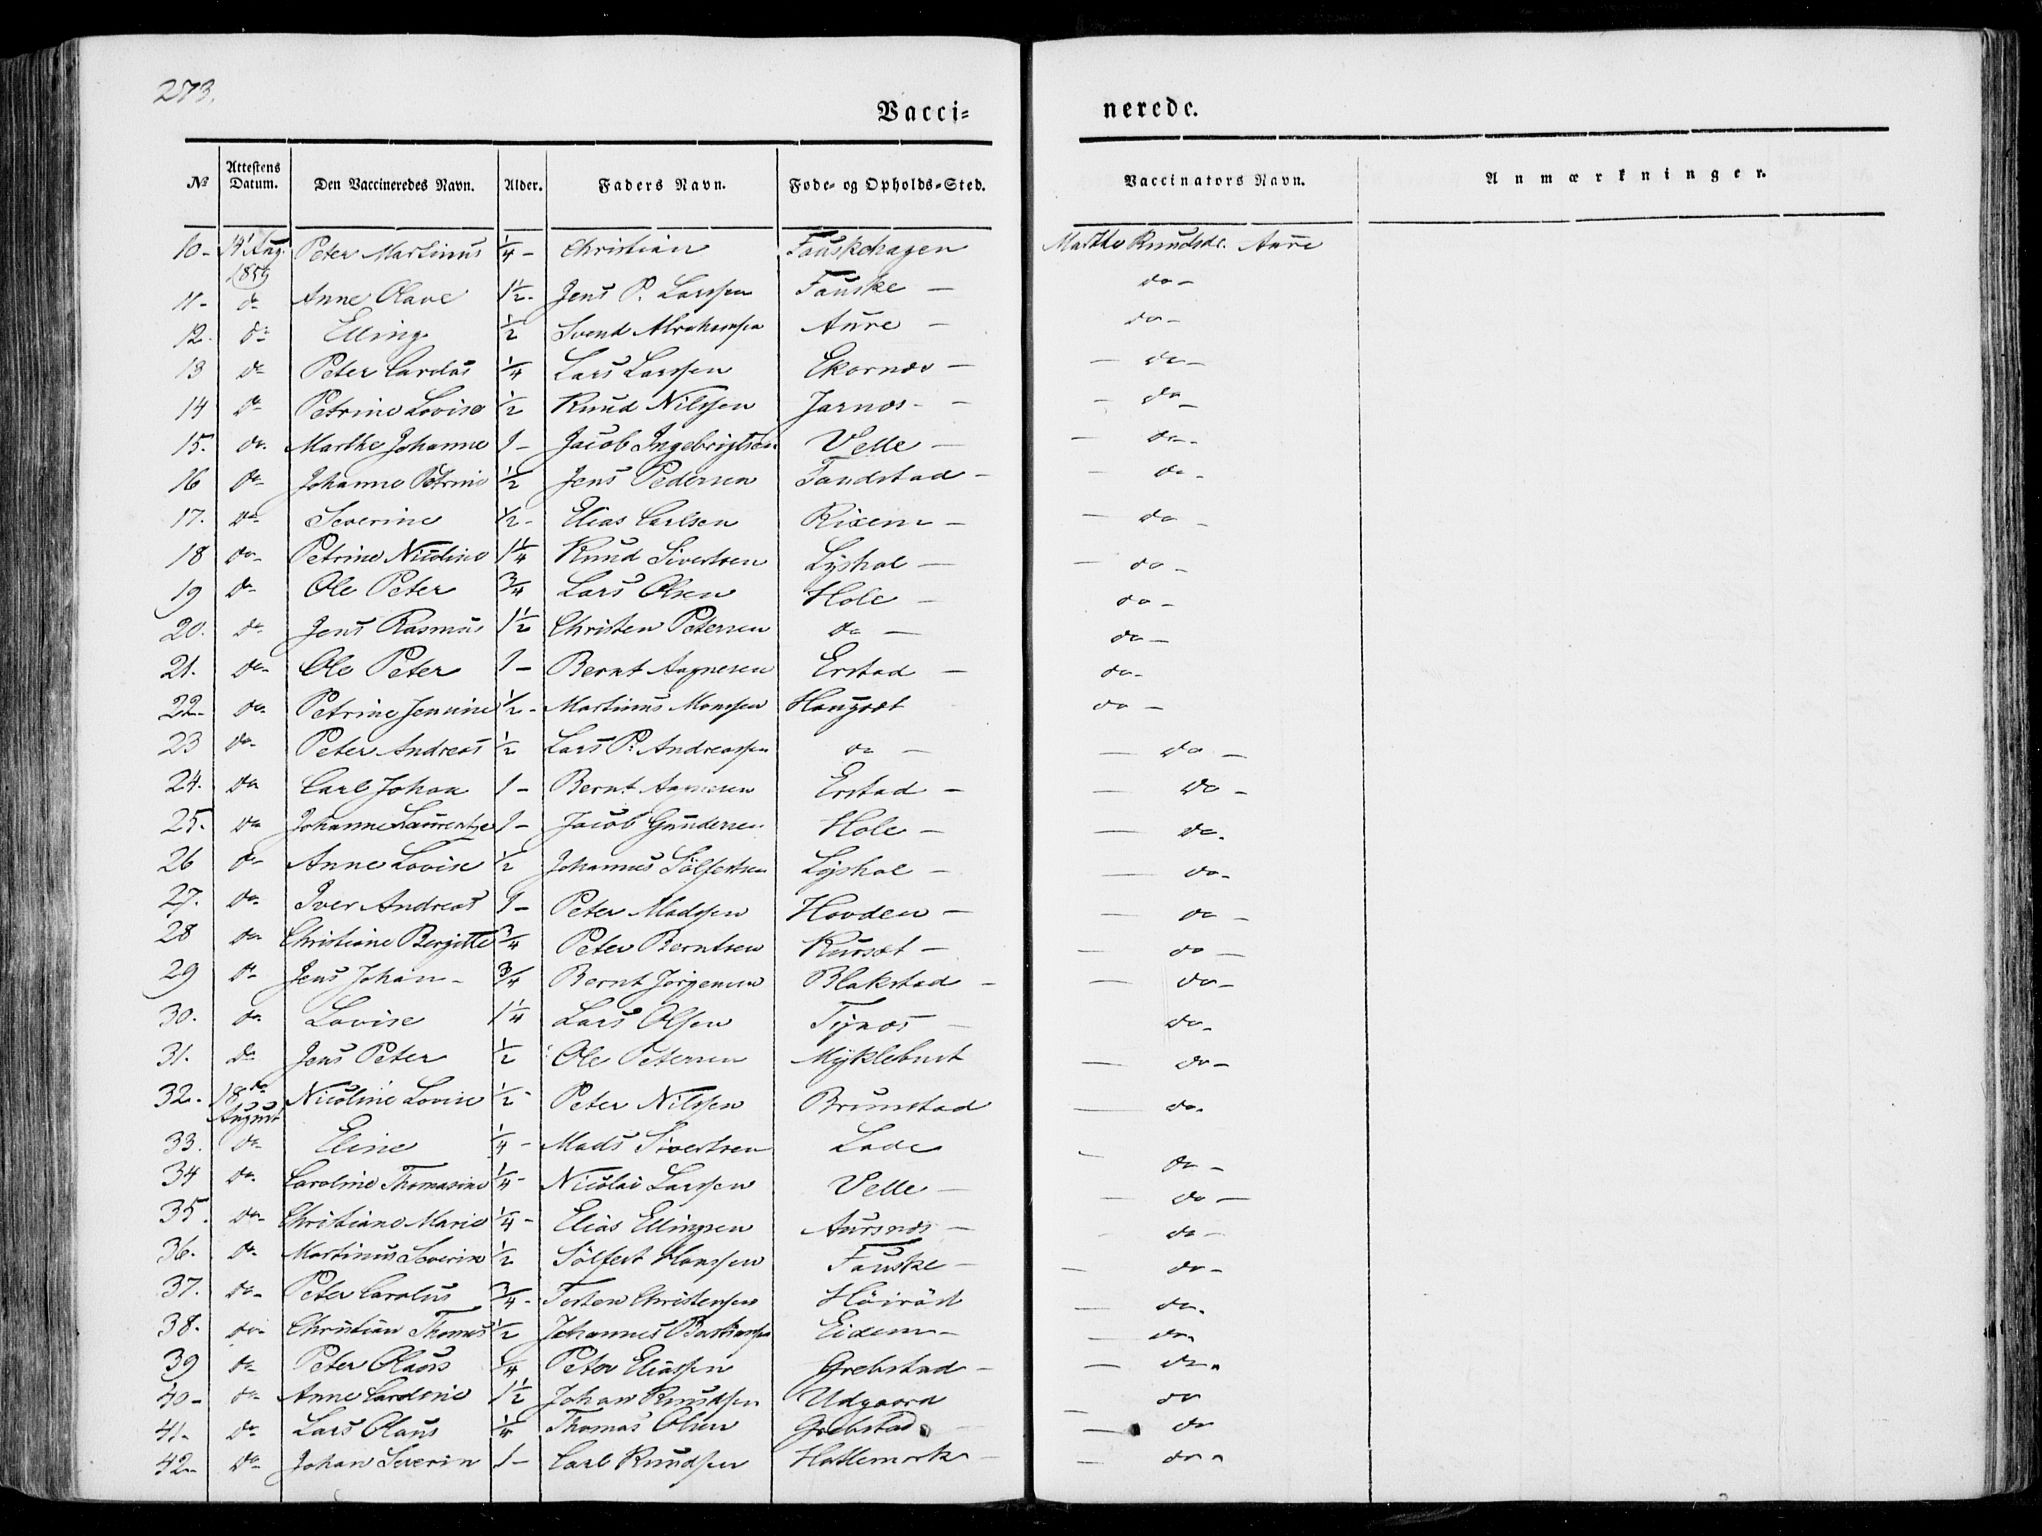 273.
Vacci- nerede.
№ Attestens Datum. Den Vaccineredes Navn. Alder. Faders Navn. Føde- og Opholds-Sted. Vaccinators Navn. Anmærkninger.
10- 14 Aug. 1859 Peter Martinus 1/4 - Christian Fauskehagen Marthe Knudsdr. Aure
11- do Anne Olave 1 1/2 - Jens P. Larssen Fauske - do -
12. do Elling 1/2 Svend Abrahamsen Aure - do -
13 do Peter Carolus 1/4 Lars Larssen Ekornæs - - do -
14 do Petrine Lovise 1/2 Knud Nilssen Jarnæs - - do -
15. do Marthe Johanne 1 - Jacob Ingebrigtsen Velle - - do -
16 do Johanne Petrine 1/2 Jens Pedersen Tandstad - - do -
17. do Severine 1/2 - Elias Carlsen Rixem - - do -
18 do Petrine Nicoline 1 1/4 Knud Sivertsen Lyshol - - do -
19 do Ole Peter 3/4 Lars Olsen Hole - do -
20. do Jens Rasmus 1 1/2 Christen Petersen do - do -
21. do Ole Peter 1 - Bernt Aagnesen Erstad - do -
22- do Petrine Jennine 1/2 - Martinus Monssen Haugsæt do -
23 do Peter Andreas 1/2 Lars P. Andreassen do - - do -
24. do Carl Johan 1 - Bernt Aagnesen Erstad - - do -
25. do Johanne Laurentze 1 - Jacob Gundersen Hole - - do -
26 do Anne Lovise 1/2 Johannes Sölfestsen Lyshol - - do -
27. do Iver Andreas 1 - Peter Madssen Hovden - - do -
28 do Christiane Bergitte 3/4 Peter Berntsen Kursæt - - do -
29 do Jens Johan - 3/4 Bernt Jørgensen Blakstad - - do -
30. do Lovise 1 1/4 Lars Olsen Tynæs - do -
31. do Jens Peter 1/2 Ole Petersen Myklebust - do -
32. 18de August Nicoline Lovise 1/2 - Peter Nilssen Brunstad - do -
33. do Eline 1/4 - Mads Sivertsen Lade - do -
34 do Caroline Thomasine 1/4 - Nicolai Larssen Velle - - do -
35. do Christiane Marie 1/4 - Elias Ellingsen Aursnæs - - do -
36. do Martinus Severin 1/2 Sölfest Hanssen Fauske - - do -
37. do Peter Carolus 3/4 - Torsten Christensen - do -
38. do Christian Thomas 1/2 Johannes Eidem - - do
39 do Peter Olaus 1/4 Peter Eliassen Grebstad - - do
40- do Anne Caroline 1 1/2 Johan Knudssen Udgaard - do
41- do Lars Olaus 1/4 Thomas Olsen Grebstad - - do
42- do Johan Severin 1 - Carl Knudssen Hattemark - - do